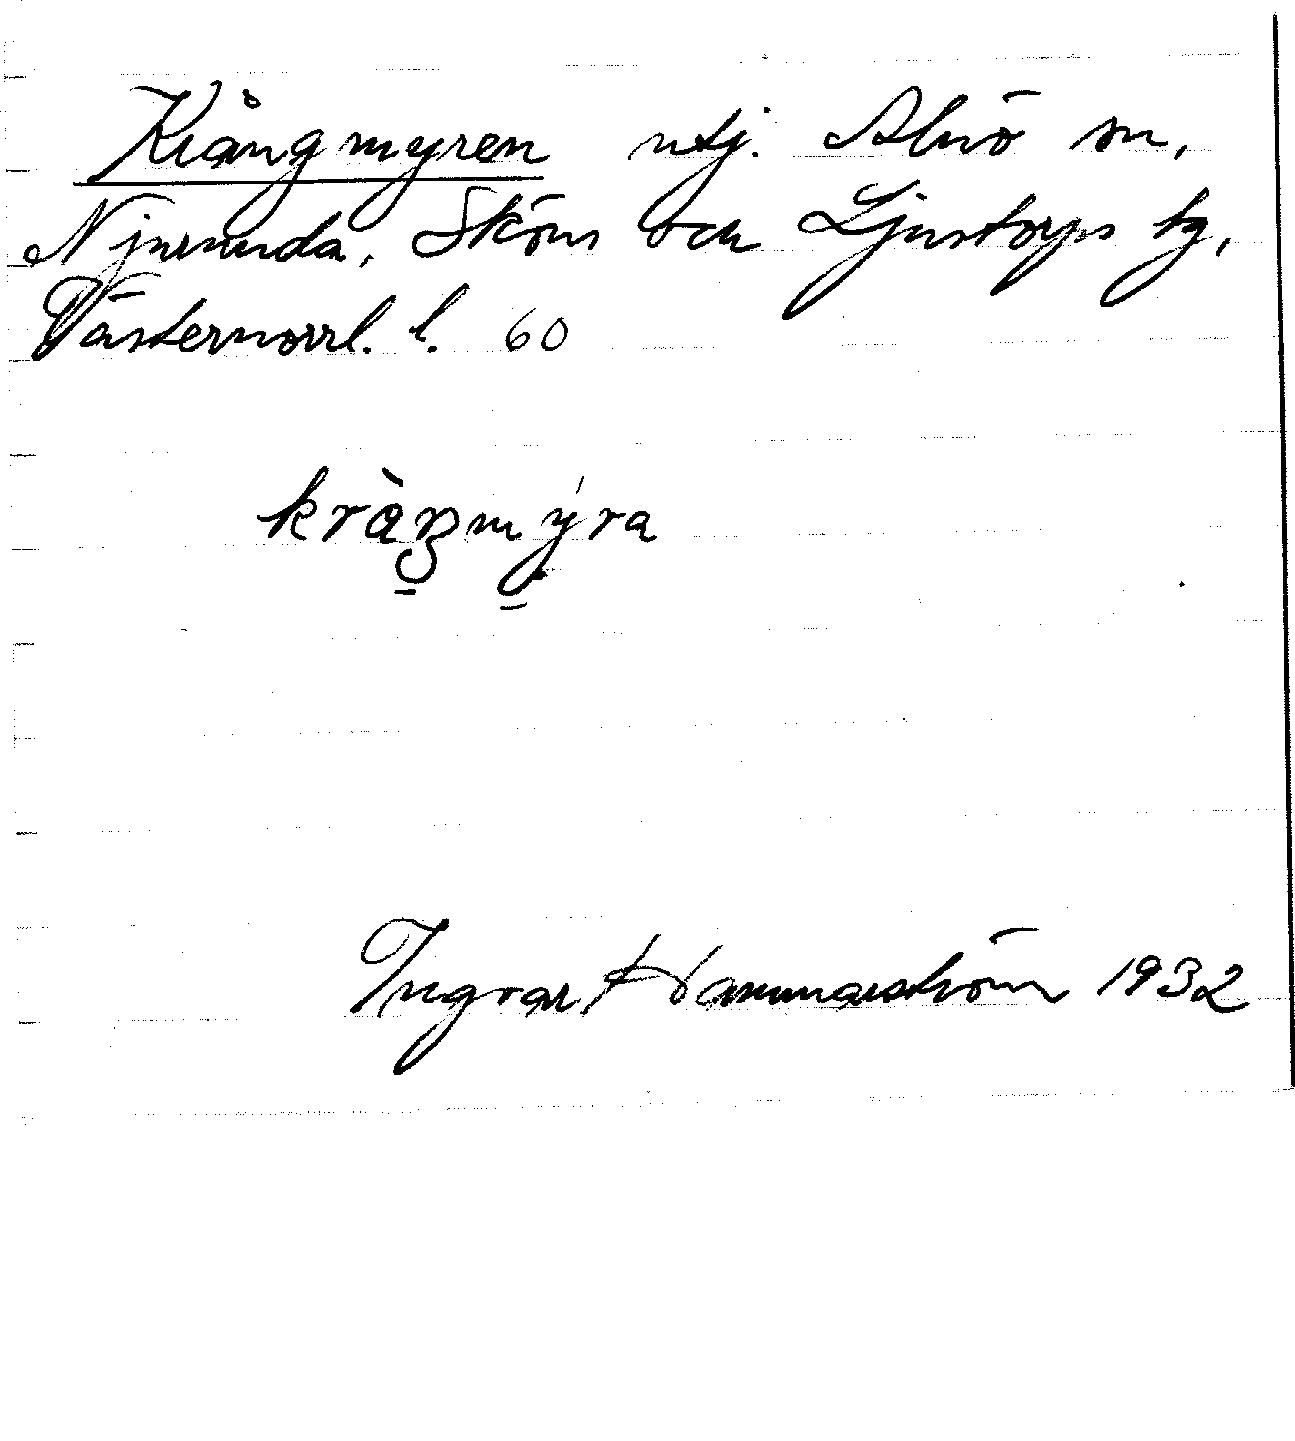 Krångmyren utj. Alnö sn,
Njurunda, Sköns och Ljustorps tg,
Västernorrl. l. 60
kràŋmýra
Ingvar Hammarström 1932